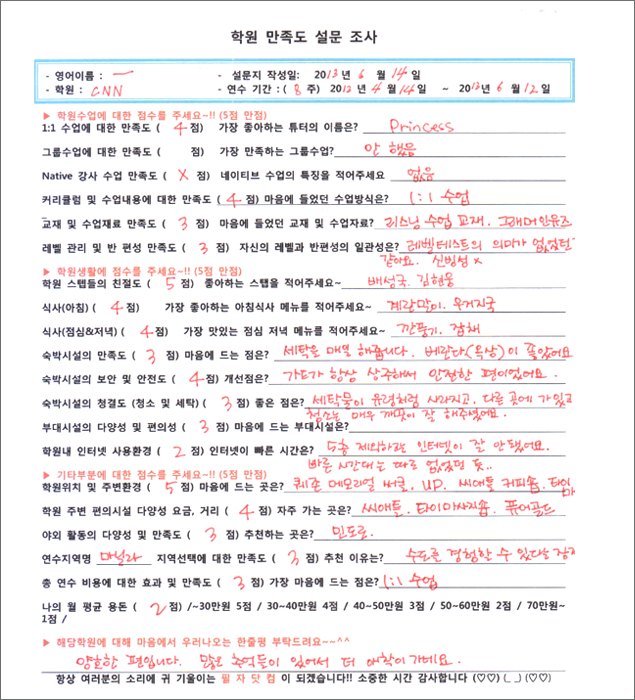 학원 만족도 설문 조사
- 영어이름 : ㅡ - 설문지 작성일: 2013년 6월 14일
- 학원 : CNN - 연수 기간 : ( 8 주) 2013년 4월 14일 ~ 2013년 6월 12일
▶ 학원수업에 대한 점수를 주세요~!! (5점 만점)
1:1 수업에 대한 만족도 ( 4 점) 가장 좋아하는 튜터의 이름은? Princess
그룹수업에 대한 만족도 ( 점) 가장 만족하는 그룹수업? 안 했음
Native 강사 수업 만족도 ( x 점) 네이티브 수업의 특징을 적어주세요 없음
커리큘럼 및 수업내용에 대한 만족도 ( 4 점) 마음에 들었던 수업방식은? 1:1 수업
교재 및 수업재료 만족도 ( 3 점) 마음에 들었던 교재 및 수업자료? 리스닝 수업 교재. 그래머인유즈
레벨 관리 및 반 편성 만족도 ( 3 점) 자신의 레벨과 반편성의 일관성은? 레벨테스트의 의미가 없었던
같아요. 신빙성 x
▶ 학원생활에 점수를 주세요~!! (5점 만점)
학원 스텝들의 친절도 ( 5 점) 좋아하는 스탭을 적어주세요~ 배성국. 김현웅
식사(아침) ( 4 점) 가장 좋아하는 아침식사 메뉴를 적어주세요~ 계란말이. 우거지국
식사(점심&저녁) ( 4 점) 가장 맛있는 점심 저녁 메뉴를 적어주세요~ 깐풍기. 잡채
숙박시설의 만족도 ( 3 점) 마음에 드는 점은? 세탁을 매일 해줍니다. 베란다(옥상)이 좋았어요
숙박시설의 보안 및 안전도 ( 4 점) 개선점은? 가드가 항상 상주해서 안전한 편이었어요.
숙박시설의 청결도 (청소 및 세탁) ( 3 점) 좋은 점은? 세탁물이 유령처럼 사라지고. 다른 곳에 가 있고
청소는 매우 깨끗이 잘 해주셨어요.
부대시설의 다양성 및 편의성 ( 3 점) 마음에 드는 부대시설은?
학원내 인터넷 사용환경 ( 2 점) 인터넷이 빠른 시간은? 5층 제외하고는 인터넷이 잘 안됐어요.
빠른 시간대는 따로 없었던 듯..
▶ 기타부분에 대한 점수를 주세요~!! (5점 만점)
학원위치 및 주변환경 ( 5 점) 마음에 드는 곳은? 퀘존 메모리얼 써클, UP. 씨애틀 커피숍. 타이마
학원 주변 편의시설 다양성 요금, 거리 ( 4 점) 자주 가는 곳은? 씨애틀. 타이마사지숍. 퓨어골드
야외 활동의 다양성 및 만족도 ( 3 점) 추천하는 곳은? 민도로.
연수지역명 마닐라 지역선택에 대한 만족도 ( 3 점) 추천 이유는? 수도를 경험할 수 있다는 장점
총 연수 비용에 대한 효과 및 만족도 ( 3 점) 가장 마음에 드는 점은? 1:1 수업
나의 월 평균 용돈 ( 2 점) /~30만원 5점 / 30~40만원 4점 / 40~50만원 3점 / 50~60만원 2점 / 70만원~
1점 /
▶ 해당학원에 대해 마음에서 우러나오는 한줄평 부탁드려요~^^
양호한 편입니다. 많은 추억들이 있어서 더 애착이 가네요.
항상 여러분의 소리에 귀 기울이는 필 자 닷 컴 이 되겠습니다!! 소중한 시간 감사합니다 (♡♡) (_ _) (♡♡)